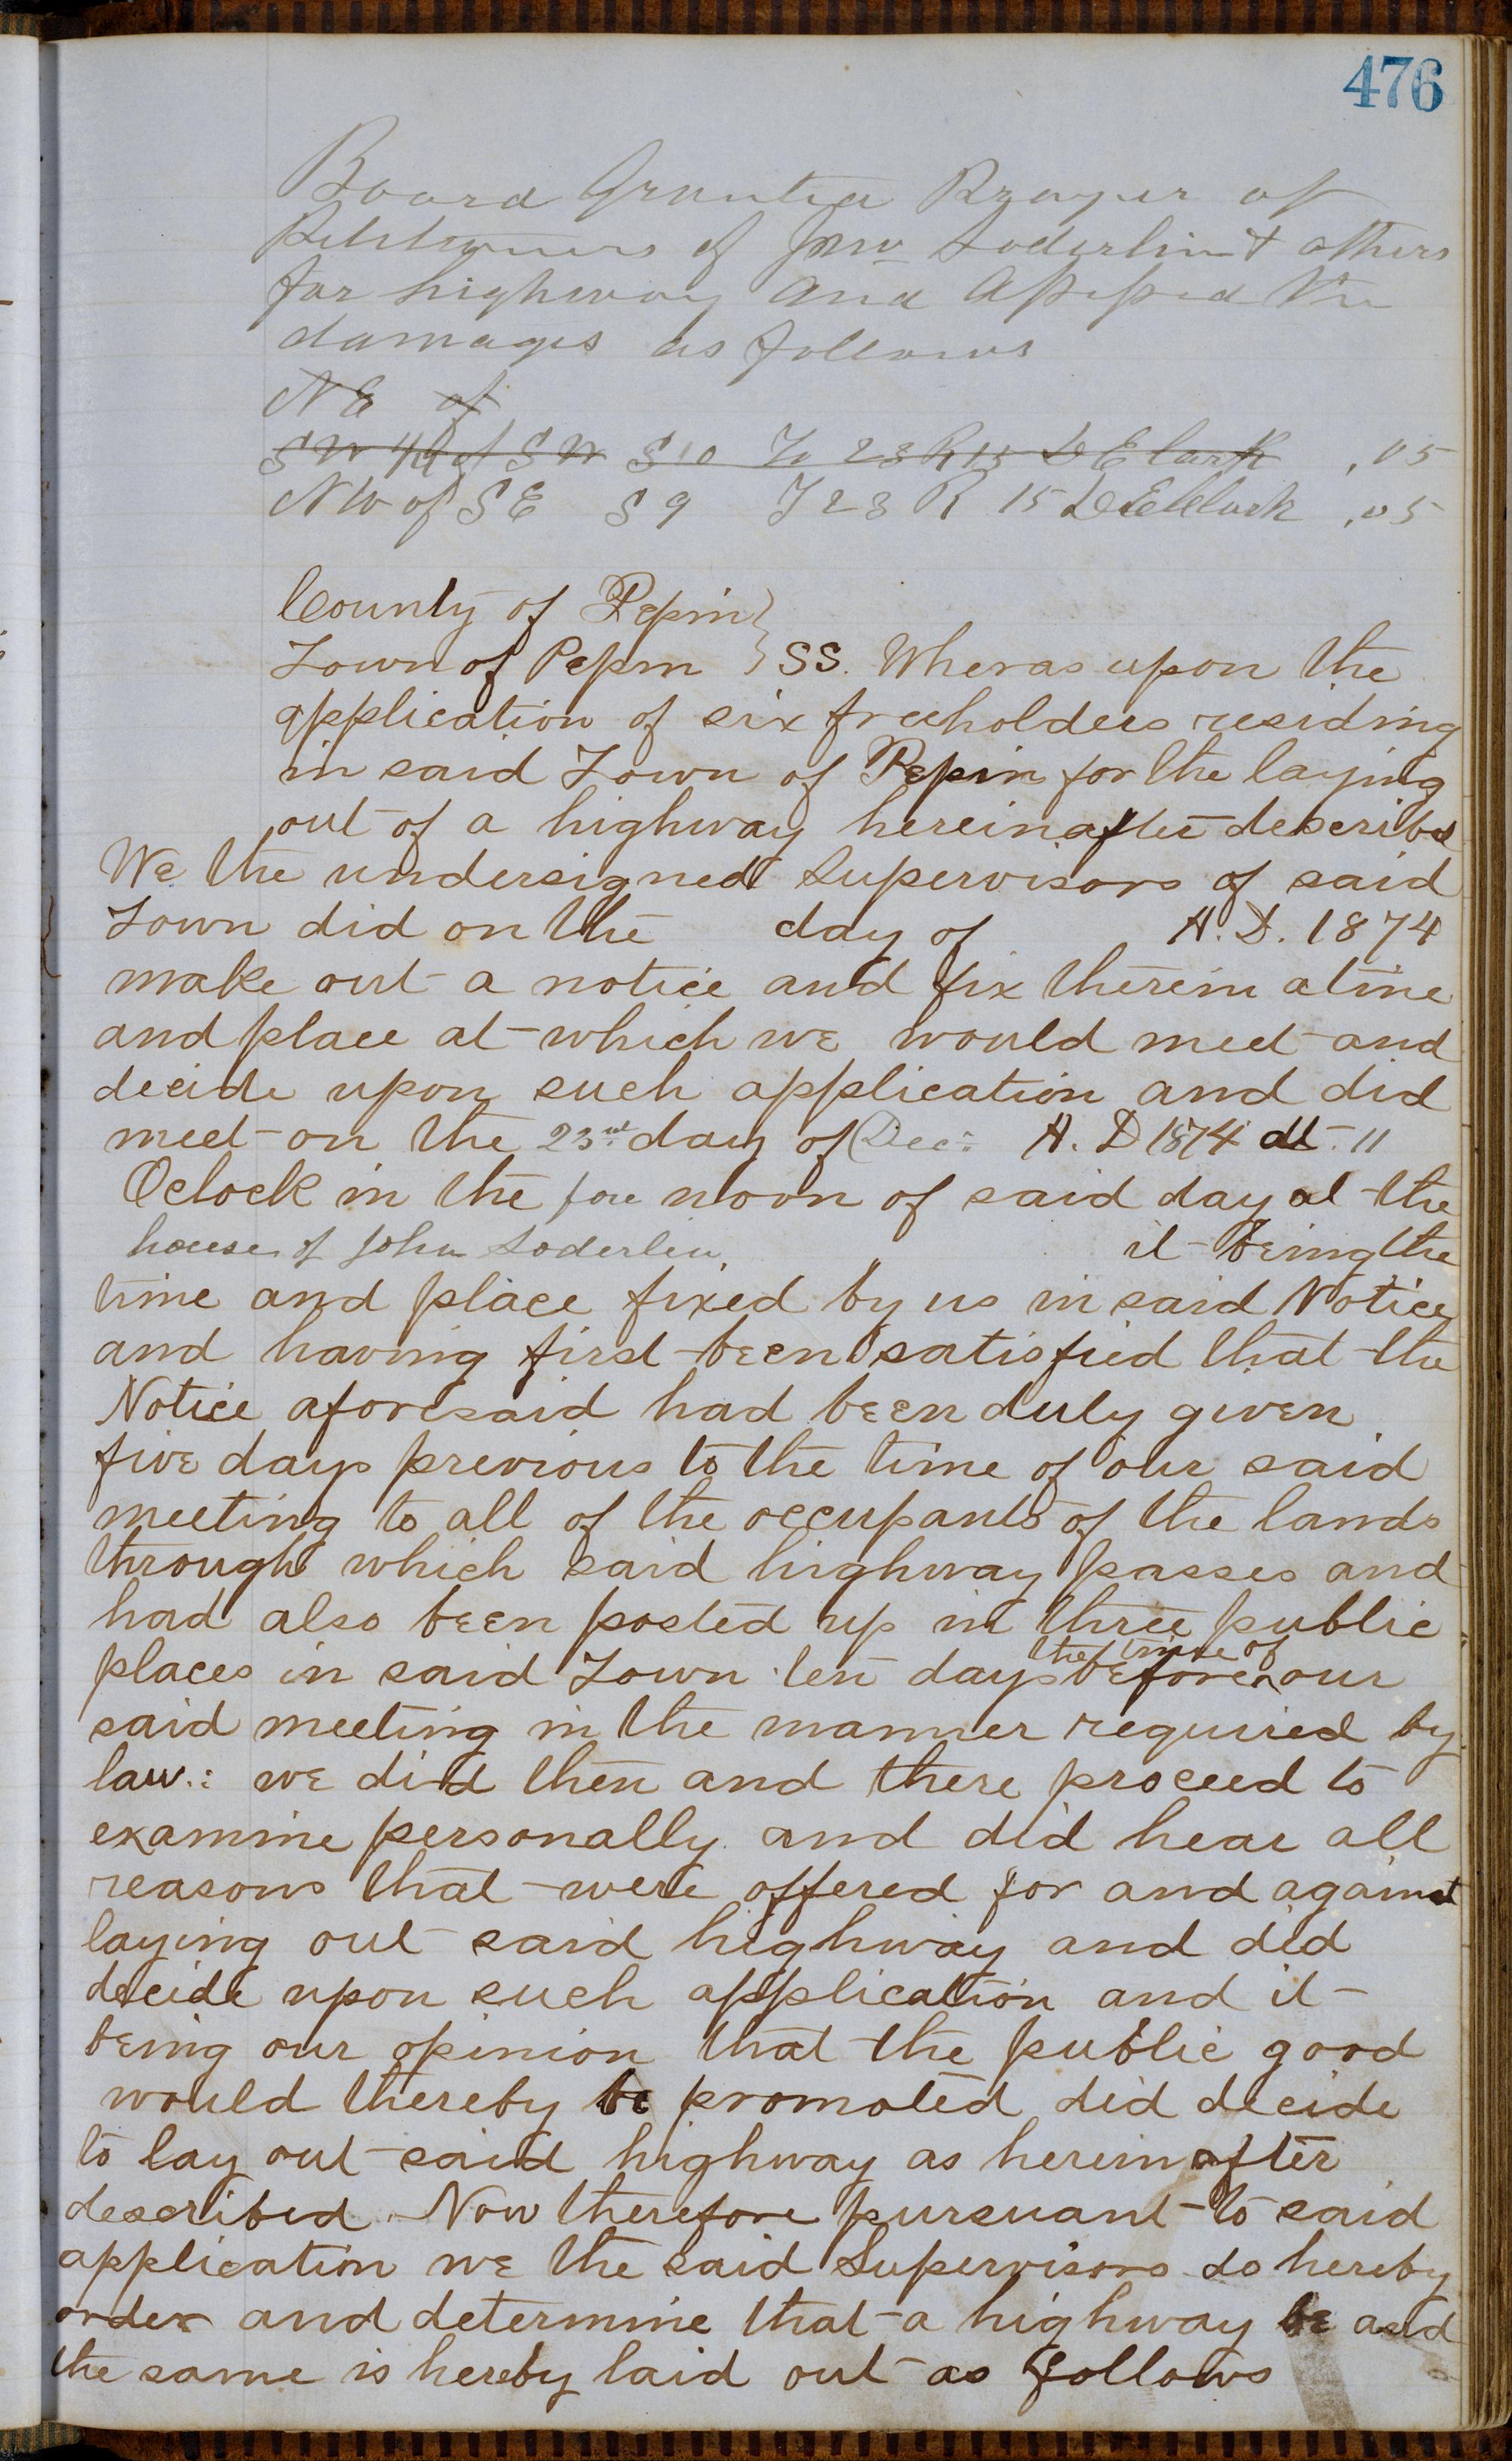 476
Board Granted Prayer of
Petitioners of Jno Soderlin & others
for highway and assessed the
damages as follows
NE of
SW 1/4 of SW S10 T 23 R 15 D E Clark .05
NW of SE S 9 T 23 R 15 D E Clark .05
County of Pepin }
Town of Pepin } SS. Wheras upon the
application of six freeholders residing
in said Town of Pepin for the laying
out of a highway hereinafter described
We the undersigned Supervisors of said
Town did on the day of A. D. 1874
make out a notice and fix therein a time
and place at which we would meet and
decide upon such application and did
meet on the 23rd day of Dec. A. D 1874 at 11
Oclock in the fore noon of said day at the
house of John Soderlin it being the
time and place fixed by us in said Notice
and having first been satisfied that the
Notice aforesaid had been duly given
five days previous to the time of our said
meeting to all of the occupants of the lands
through which said highway passes and
had also been posted up in three public
places in said Town ten days before the time of our
said meeting in the manner required by
law.: we did then and there proceed to
examine personally and did hear all
reasons that were offered for and against
laying out said highway and did
decide upon such application and it
being our opinion that the public good
would thereby be promoted did decide
to lay out said highway as hereinafter
described Now therefore pursuant to said
application we the said Supervisors do hereby
order and determine that a highway be and
the same is hereby laid out as follows